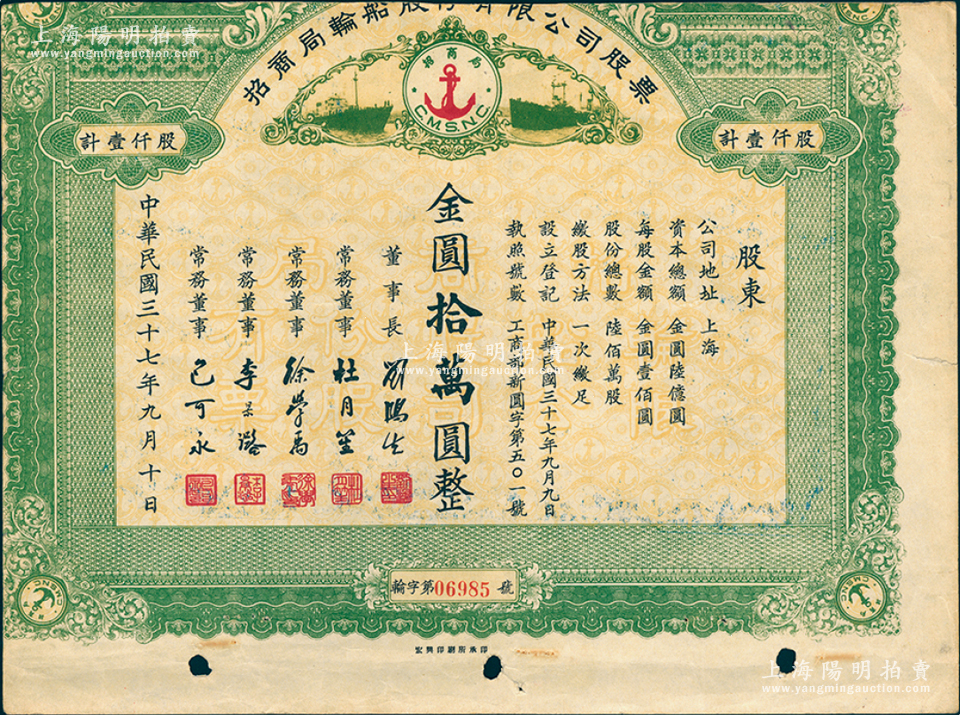 上海陽明拍賣
www.yangmingauction.com
上海陽明拍賣
www.yangmingauction.com
招商局輪船股份有限公司股票
商
招 局
C.M.S.N.C.
計壹仟股
計壹仟股
股東
公司地址 上海
資本總額 金圓陸億圓
每股金額 金圓壹佰圓
股份總數 陸佰萬股
繳股方法 一次繳足
設立登記 中華民國三十七年九月九日
執照號數 工商部新圓字第五〇一號
金圓拾萬圓整
董事長 劉鴻生
常務董事 杜月笙
常務董事 徐學禹
常務董事 李
常務董事 可永
中華民國三十七年九月十日
上海陽明拍賣
www.yangmingauction.com
輪字第06985號
宏興印刷所承印
上海陽明拍賣
www.yangmingauction.com